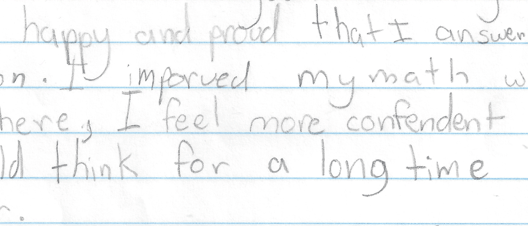 happy and proud that I answer
on. It imparved my math w
here, I feel more confendent
ld think for a long time
r.